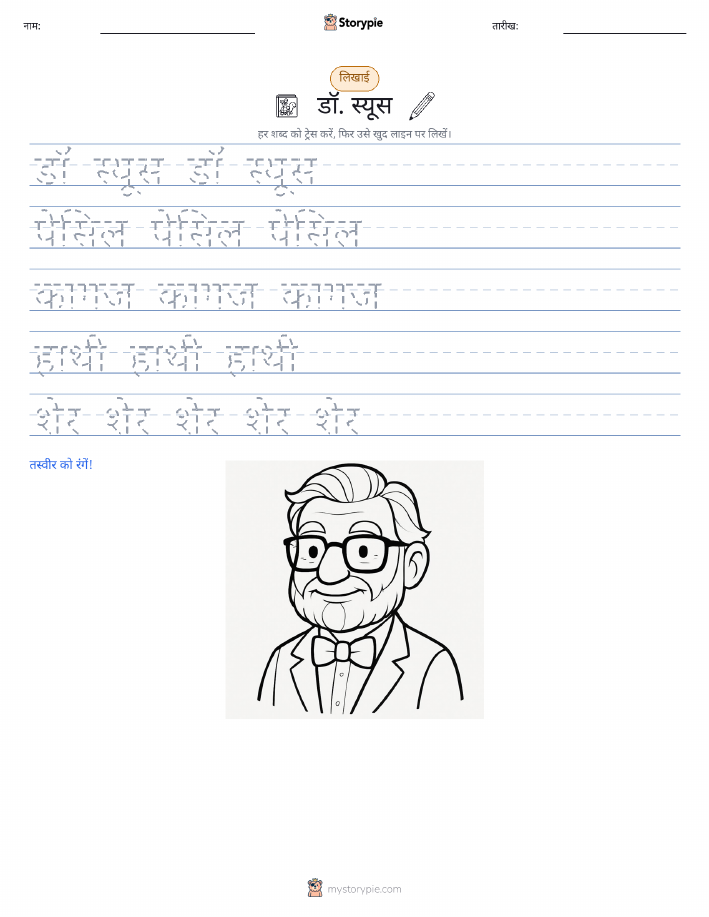 नाम:
Storypie
तारीख:
लिखाई
डॉ. स्यूस
हर शब्द को ट्रेस करें, फिर उसे खुद लाइन पर लिखें।
डॉ स्यूस डॉ स्यूस
पेंसिल पेंसिल पेंसिल
कागज कागज कागज
हाथी हाथी हाथी
शेर शेर शेर शेर शेर
तस्वीर को रंगें!
mystorypie.com